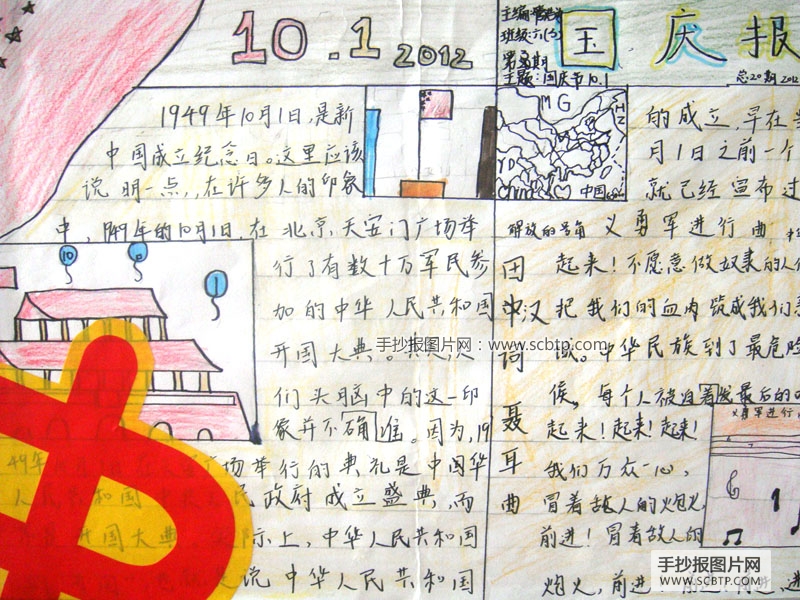 10.1 2012
主编:
班级:六(5)
第 期
主题:国庆节10.1
国庆报
总20期 2012
1949年10月1日,是新
中国成立纪念日。这里应该
说明一点,,在许多人的印象
中,1949年的10月1日,在北京天安门广场举
行了有数十万军民参
加的中华人民共和国
开国大典。
们头脑中的这一印
象并不确准。因为,19
49年 场举行的典礼是中国华
人民共和国 民政府成立盛典,而
开国大典 际上,中华人民共和国
说中华人民共和国
MG
IN
China
中国
的成立,早在
月1日之前一个
就已经宣布过
解放的号角 义勇军进行曲
田汉词
聂耳曲
起来!不愿意做奴隶的人
把我们的血肉筑成我们
中华民族到了最危险
候,每个人被迫着发最后的
起来!起来!起来!
我们万众一心,
冒着敌人的炮火,
前进!冒着敌人的
炮火,前进!
义勇军进行
10
1
手抄报图片网:www.scbtp.com
手抄报图片网
WWW.SCBTP.COM